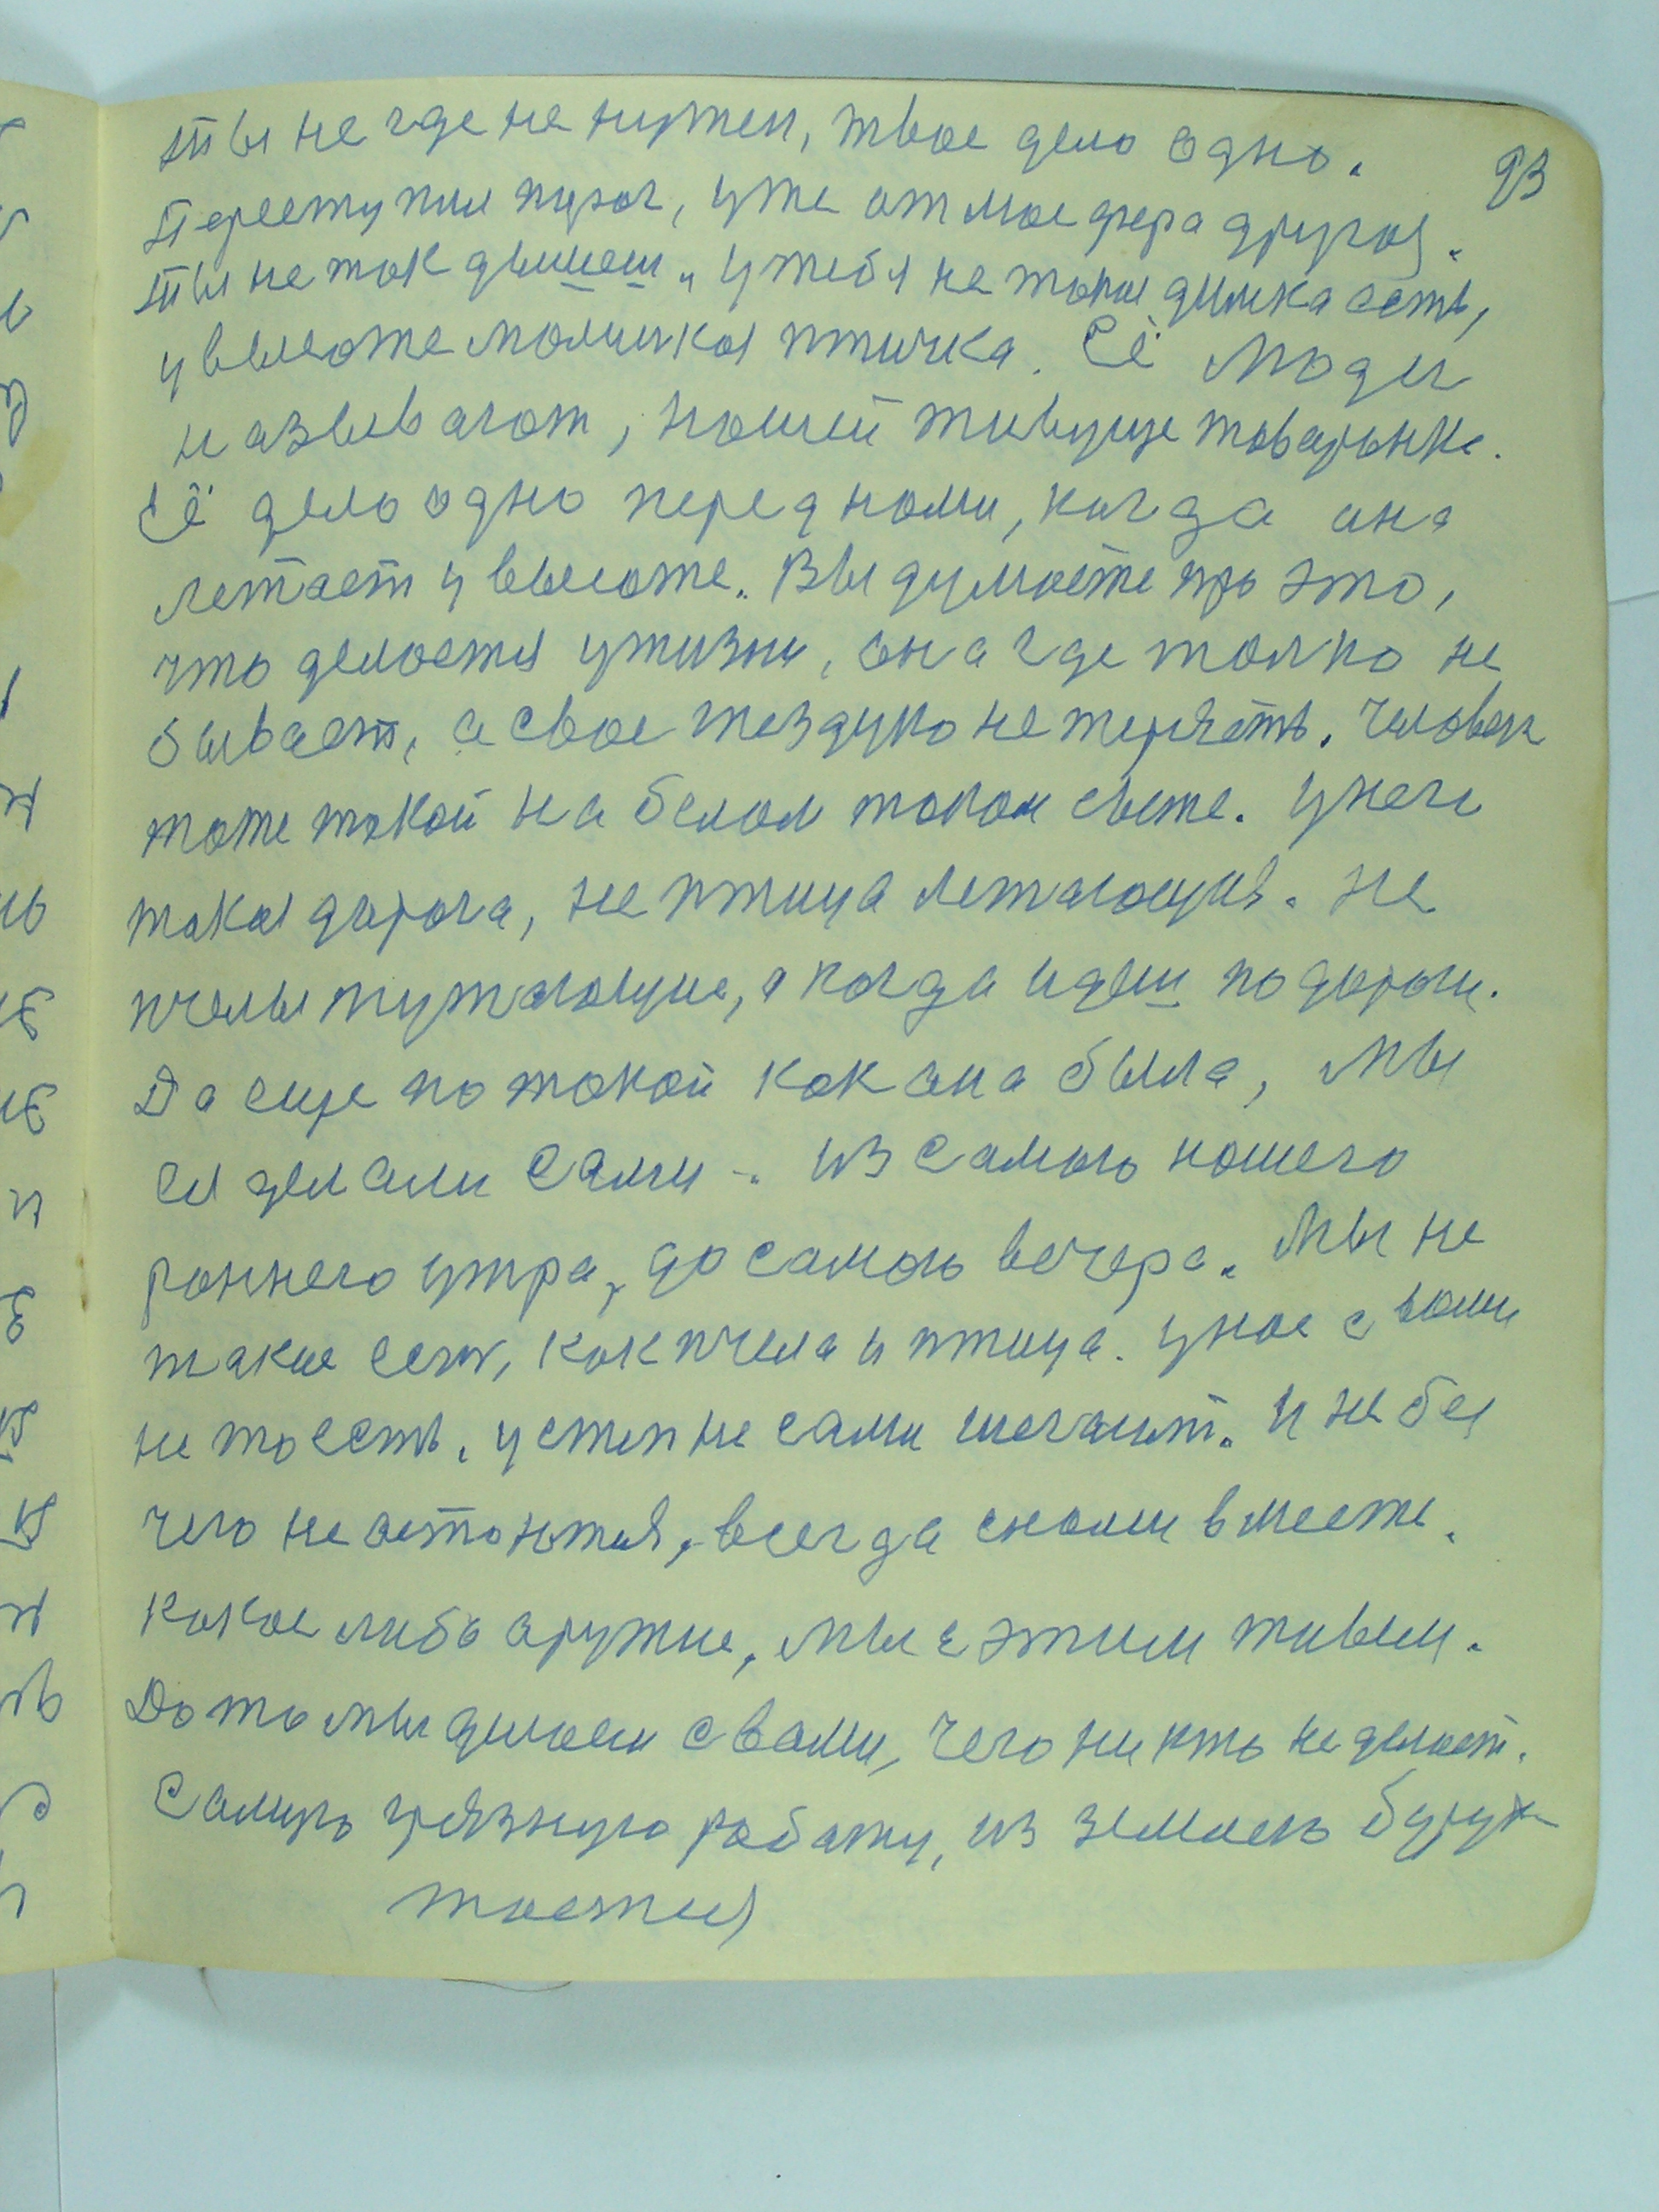 93
ты не где не нужен, твое дело одно.
Переступил порог, уже отмосфера другоя.
ты не так дышеш. у тебя не токая думка есть,
у высоте молинкоя птичка. Её люди
называют, нашей живуще товарынке.
Её дело одно перед номи, когда она
летает у высоте. Вы думаете про это,
что делоется ужизни, она где толко не
бывает, а свое гнездуко не теряеть. Человек
тоже такой на белом током свете. Унего
токая дорога, не птица летающия. Не
пчелы жужжающие, а когда идеш по дороги.
Да еще по токой как она была, мы
ея делали сами. Из самого ношего
роннего утра, до самого вечера. Мы не
такие есть, как пчела и птица. унос с вами
не то есть. устеп не сами шегаит. И не бес
чего не остоится, всегда сноми вместе.
Кокое либо оружие, мы с этим живем.
До то мы делоем с вами, чего ни кто не делоет.
Самую грязную роботу, из землею
тоется